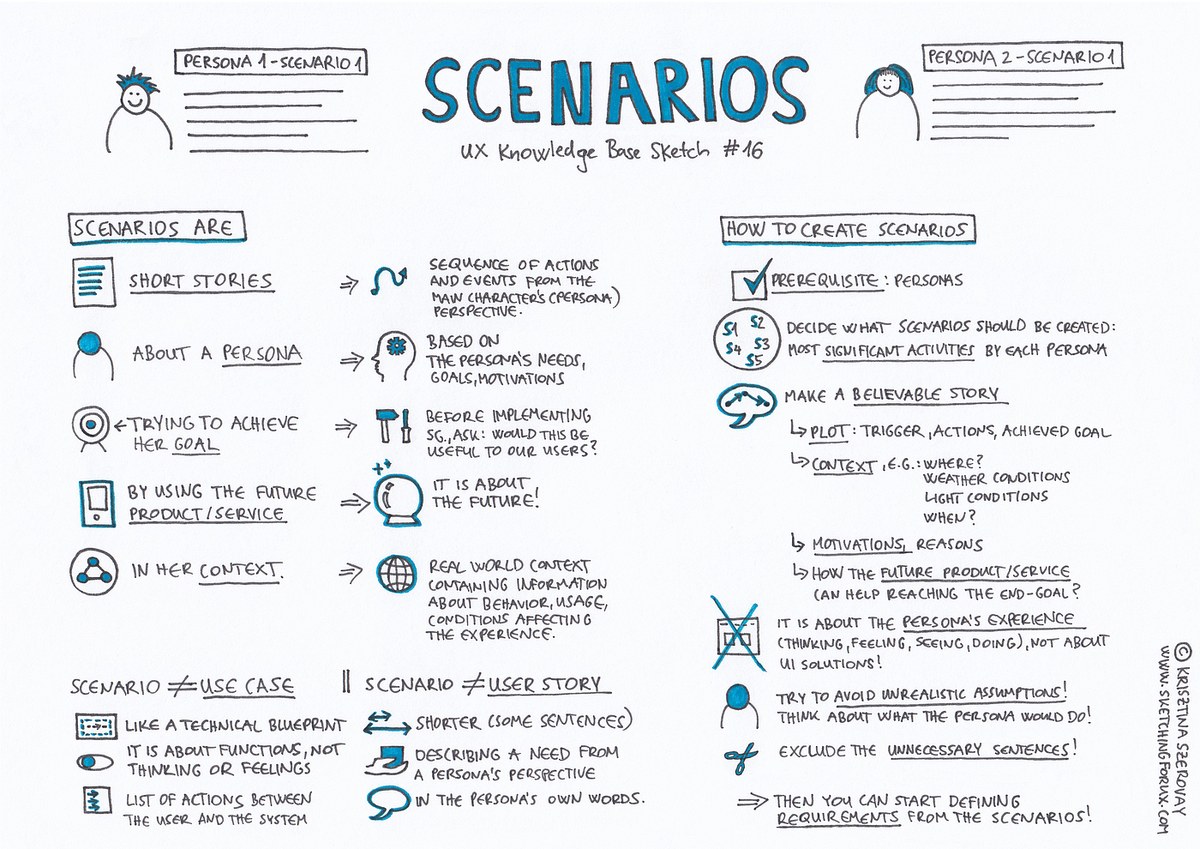 PERSONA 1-SCENARIO 1
SCENARIOS
UX Knowledge Base Sketch #16
PERSONA 2-SCENARIO 1
SCENARIOS ARE
SHORT STORIES
SEQUENCE OF ACTIONS
AND EVENTS FROM THE
MAIN CHARACTER'S (PERSONA)
PERSPECTIVE.
ABOUT A PERSONA
BASED ON
THE PERSONA'S NEEDS,
GOALS, MOTIVATIONS
TRYING TO ACHIEVE
HER GOAL
BEFORE IMPLEMENTING
SG., ASK: WOULD THIS BE
USEFUL TO OUR USERS?
BY USING THE FUTURE
PRODUCT/SERVICE
IT IS ABOUT
THE FUTURE!
IN HER CONTEXT.
REAL WORLD CONTEXT
CONTAINING INFORMATION
ABOUT BEHAVIOR, USAGE,
CONDITIONS AFFECTING
THE EXPERIENCE.
SCENARIO ≠ USE CASE
LIKE A TECHNICAL BLUEPRINT
IT IS ABOUT FUNCTIONS, NOT
THINKING OR FEELINGS
LIST OF ACTIONS BETWEEN
THE USER AND THE SYSTEM
SCENARIO ≠ USER STORY
SHORTER (SOME SENTENCES)
DESCRIBING A NEED FROM
A PERSONA'S PERSPECTIVE
IN THE PERSONA'S OWN WORDS.
HOW TO CREATE SCENARIOS
PREREQUISITE: PERSONAS
S1 S2
S4 S3
S5
DECIDE WHAT SCENARIOS SHOULD BE CREATED:
MOST SIGNIFICANT ACTIVITIES BY EACH PERSONA
MAKE A BELIEVABLE STORY
PLOT: TRIGGER, ACTIONS, ACHIEVED GOAL
CONTEXT, E.G.: WHERE?
WEATHER CONDITIONS
LIGHT CONDITIONS
WHEN?
MOTIVATIONS, REASONS
HOW THE FUTURE PRODUCT/SERVICE
CAN HELP REACHING THE END-GOAL?
IT IS ABOUT THE PERSONA'S EXPERIENCE
(THINKING, FEELING, SEEING, DOING), NOT ABOUT
UI SOLUTIONS!
TRY TO AVOID UNREALISTIC ASSUMPTIONS!
THINK ABOUT WHAT THE PERSONA WOULD DO!
EXCLUDE THE UNNECESSARY SENTENCES!
THEN YOU CAN START DEFINING
REQUIREMENTS FROM THE SCENARIOS!
© KRISZTINA SZEROVAY
WWW.SKETCHINGFORUX.COM